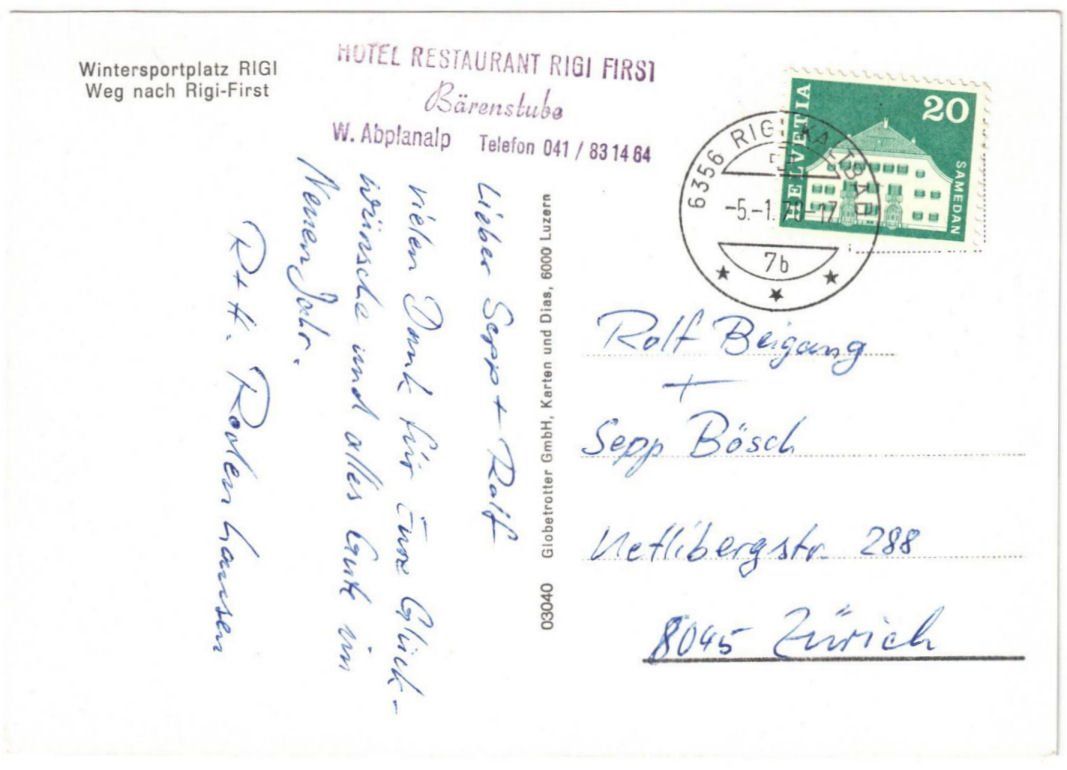 Wintersportplatz RIGI
Weg nach Rigi-First
HOTEL RESTAURANT RIGI FIRST
Bärenstube
W. Abplanalp Telefon 041 / 83 14 64
Lieber Sepp + Rolf
vielen Dank für Eure Glück-
wünsche und alles Gute im
Neuen Jahr.
R + H. Rodenhausen
03040 Globetrotter GmbH, Karten und Dias, 6000 Luzern
6356 RIGI KALTBAD
-5.-1. -17
7b
HELVETIA
20
SAMEDAN
Rolf Beigang
+
Sepp Bösch
Uetlibergstr. 288
8045 Zürich